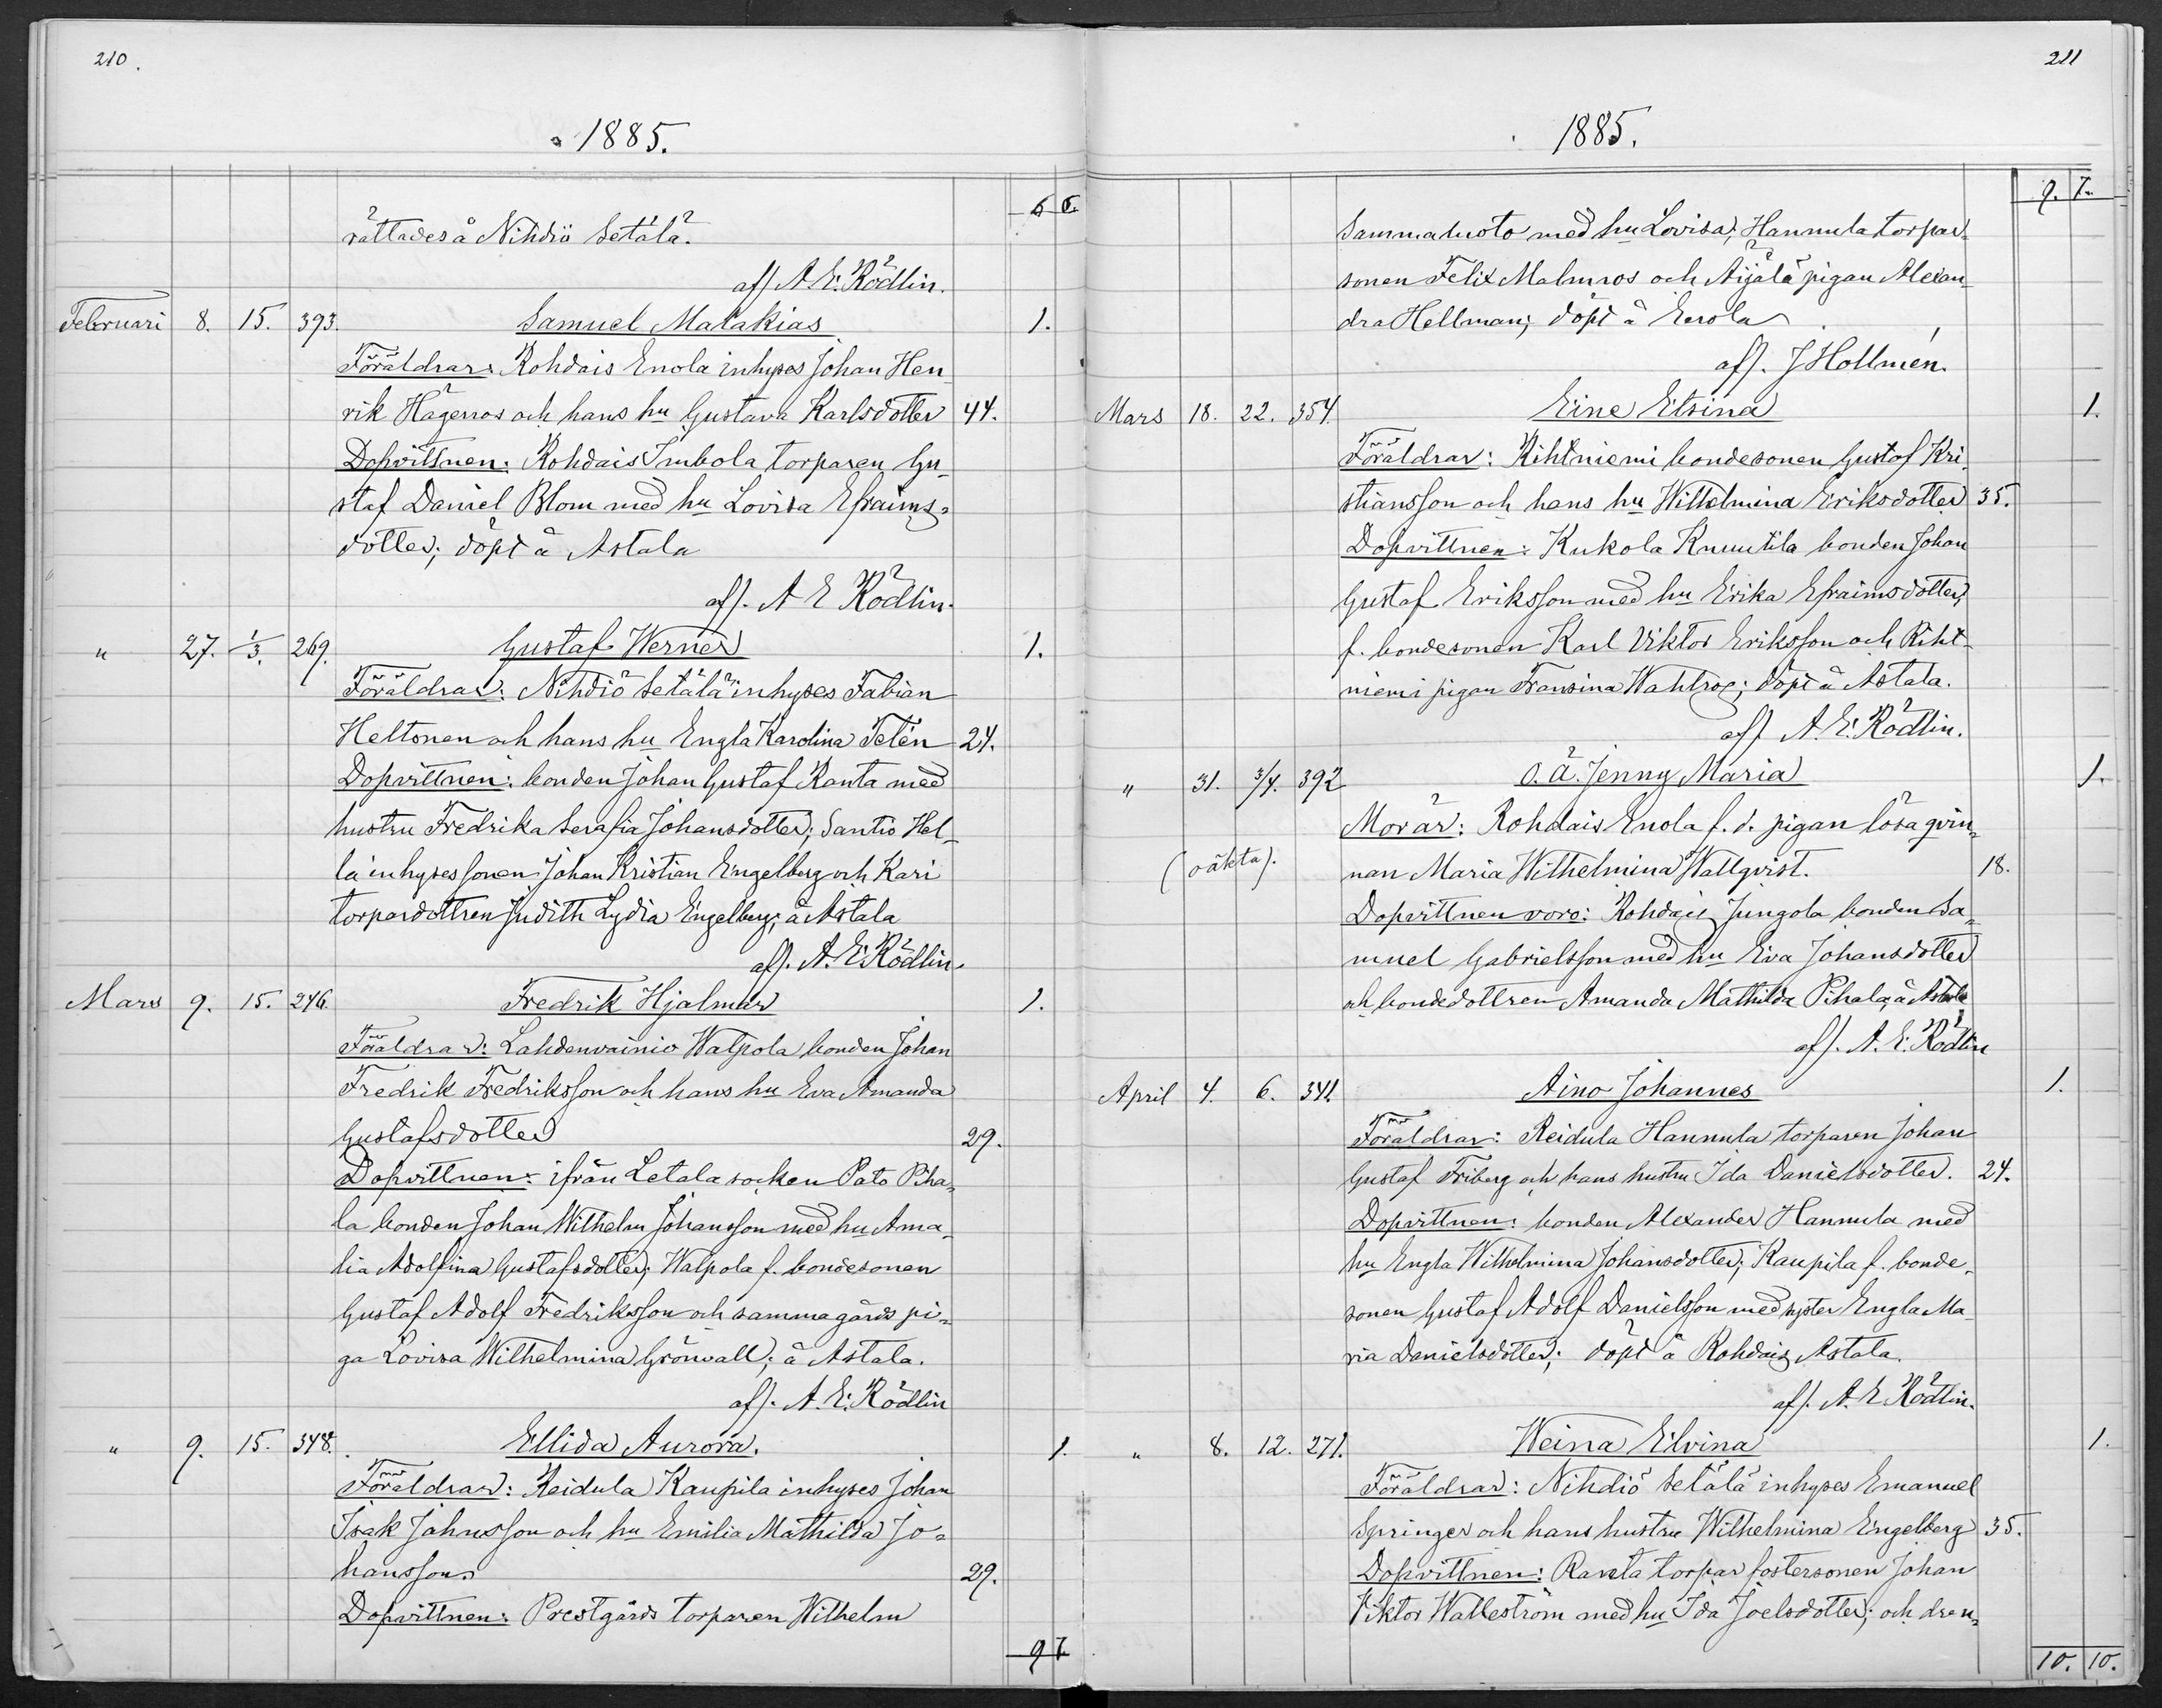 210.
1885.
6 6.
rättades å Nihdiö Setälä.
af/ A. E. Rödlin.
Februari 8. 15. 393. Samuel Malakias 1.
Föräldrar: Rohdais Enola inhyses Johan Hen-
rik Hägerros och hans hu Gustava Karlsdotter 44.
Dopvittnen: Rohdais Imbola torparen Gu-
staf Daniel Blom med hu Lovisa Efraims-
dotter; döpt å Astala
af/. A E Rödlin.
" 27. 1/3. 269. Gustaf Werner 1.
Föräldrar: Nihdiö Setälä inhyses Fabian
Heltonen och hans hu Engla Karolina Telén 24.
Dopvittnen: bonden Johan Gustaf Ranta med
hustru Fredrika Serafia Johansdotter; Santio Hel-
la inhysessonen Johan Kristian Engelberg och Kari
torpardottren Judith Lydia Engelberg; å Astala
af/. A. E. Rödlin.
Mars 9. 15. 246. Fredrik Hjalmar 1.
Föräldrar: Lahdenvainio Walpola bonden Johan
Fredrik Fredriksson och hans hu Eva Amanda
Gustafsdotter 29.
Dopvittnen: ifrån Letala socken Pato Piha-
la bonden Johan Wilhelm Johansson med hu Ama-
lia Adolfina Gustafsdotter; Walpola f. bondesonen
Gustaf Adolf Fredriksson och samma gårds pi-
ga Lovisa Wilhelmina Grönvall; å Astala.
af/. A. E. Rödlin
" 9. 15. 348. Ellida Aurora. 1.
Föräldrar: Reidula Kaupila inhyses Johan
Isak Johnsson och hu Emilia Mathilda Jo-
hansson. 29.
Dopvittnen: Prestgårds torparen Wilhelm
9 7.
211
1885.
9. 7.
Sammaluoto med hu Lovisa; Hannula torpar-
sonen Felix Malmros och Aijälä pigan Alexan-
dra Hellman; döpt å Eerola.
af/. J Hollmén.
Mars 18. 22. 354. Eine Elsina 1.
Föräldrar: Rihtniemi bondesonen Gustaf Kri-
stiansson och hans hu Wilhelmina Eriksdotter 35.
Dopvittnen: Kukola Knuutila bonden Johan
Gustaf Eriksson med hu Erika Efraimsdotter;
f. bondesonen Karl Viktor Eriksson och Riht-
niemi pigan Fransina Wahlros; döpt å Astala.
af/ A. E. Rödlin.
" 31. 3/4. 392 o. ä. Jenny Maria 1.
Mor är: Rohdais Enola f. d. pigan lösa qvin-
(oäkta). nan Maria Wilhelmina Wallqvist. 18.
Dopvittnen voro: Rohdais Jungola bonden Sa-
muel Gabrielsson med hu Eva Johansdotter
och bondedottren Amanda Mathilda Pihala; å Astala
af/. A. E. Rödlin
April 4. 6. 341. Aino Johannes 1.
Föräldrar: Reidula Hannula torparen Johan
Gustaf Friberg och hans hustru Ida Danielsdotter. 24.
Dopvittnen: bonden Alexander Hannula med
hu Engla Wilhelmina Johansdotter; Kaupila f. bonde-
sonen Gustaf Adolf Danielsson med syster Engla Ma-
ria Danielsdotter; döpt å Rohdais Astala.
af/. A. E Rödlin.
" 8. 12. 271. Weina Elvina 1.
Föräldrar: Nihdiö Setälä inhyses Emanuel
Springer och hans hustru Wilhelmina Engelberg 35.
Dopvittnen: Ranta torpar fostersonen Johan
Viktor Walleström med hu Ida Joelsdotter; och dren-
10. 10.